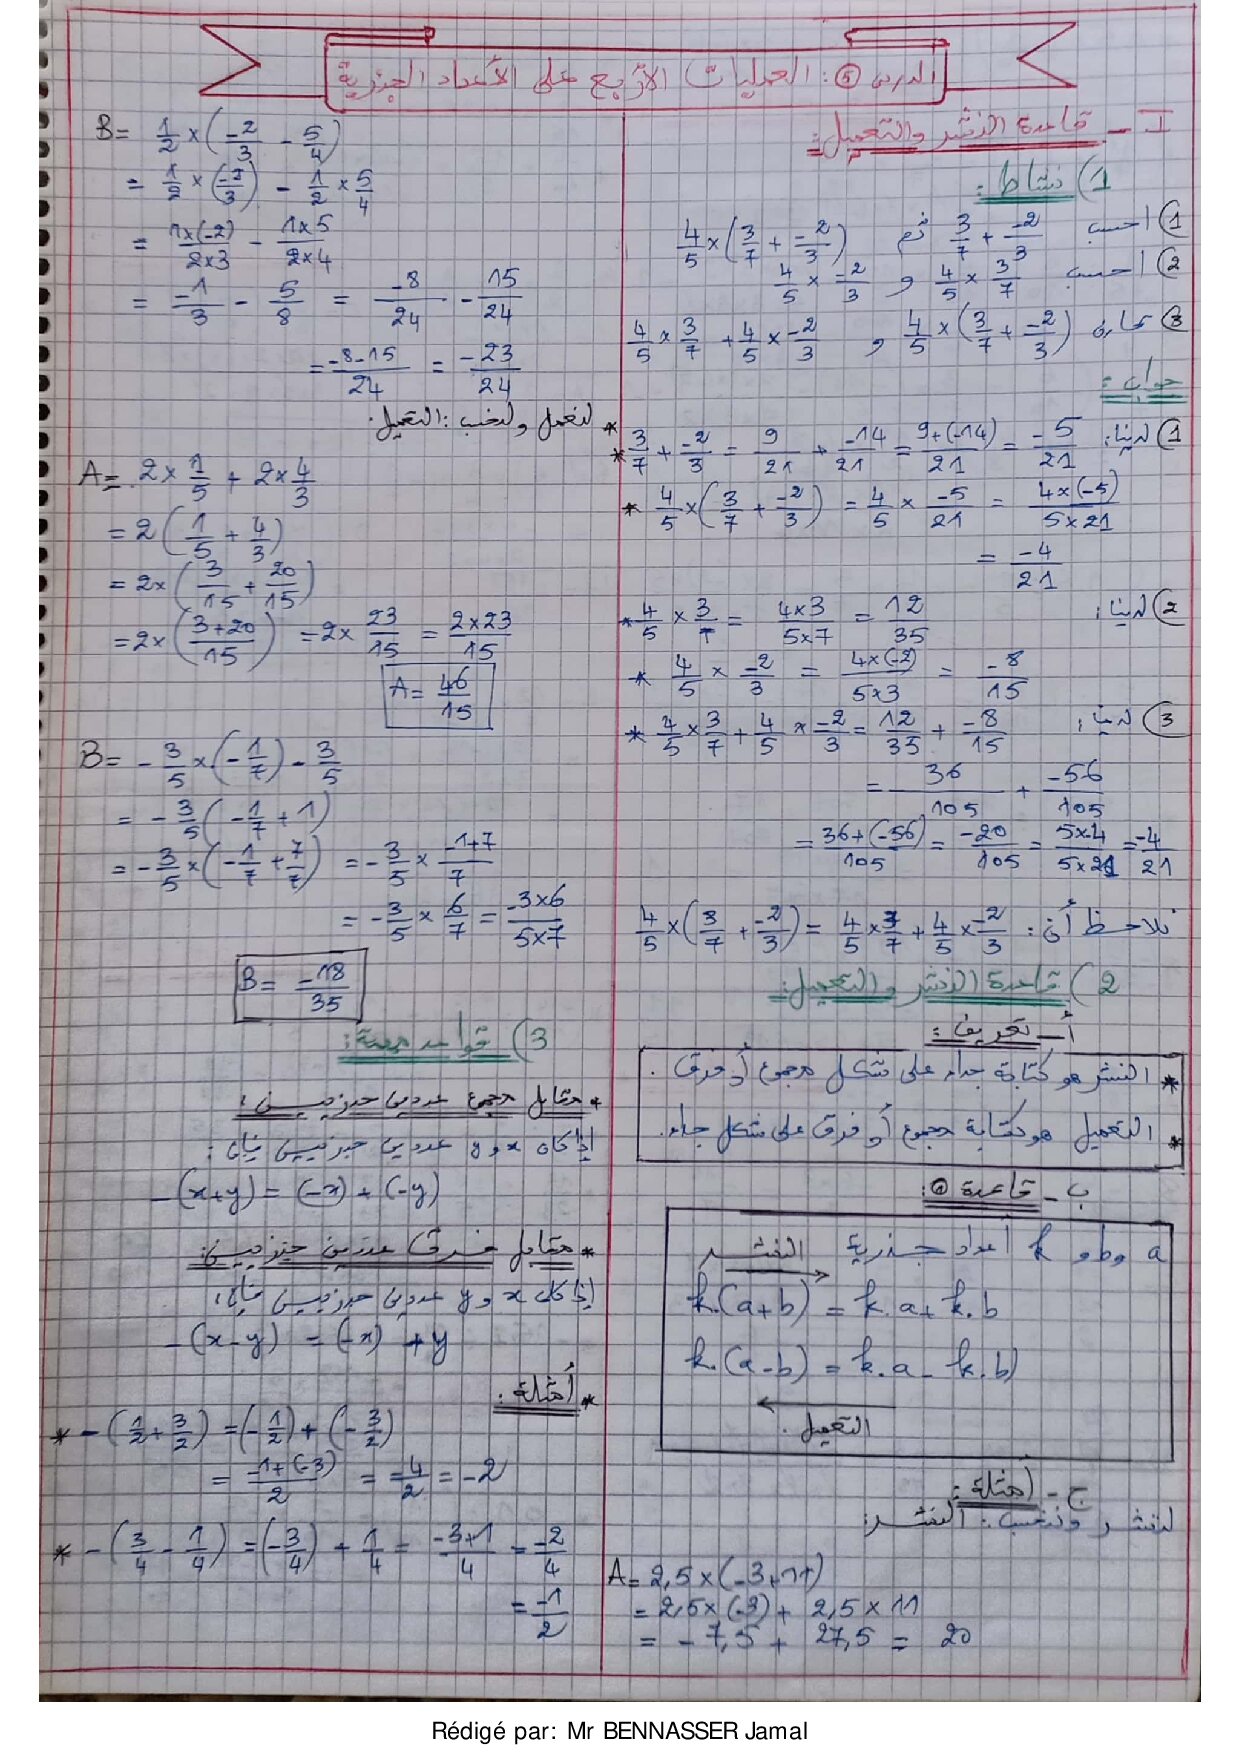 الدرس ⑤: العمليات الأربع على الأعداد الجذرية
I - قاعدة النشر والتعميل:
1) نشاط:
① احسب 3/7 + -2/3 ثم 4/5 × (3/7 + -2/3)
② احسب 4/5 × 3/7 و 4/5 × -2/3
③ قارن 4/5 × (3/7 + -2/3) و 4/5 × 3/7 + 4/5 × -2/3
جواب:
① لدينا:
* 3/7 + -2/3 = 9/21 + -14/21 = 9+(-14)/21 = -5/21
* 4/5 × (3/7 + -2/3) = 4/5 × -5/21 = 4×(-5)/5×21
= -4/21
② لدينا:
* 4/5 × 3/7 = 4×3/5×7 = 12/35
* 4/5 × -2/3 = 4×(-2)/5×3 = -8/15
③ لدينا:
* 4/5 × 3/7 + 4/5 × -2/3 = 12/35 + -8/15
= 36/105 + -56/105
= 36+(-56)/105 = -20/105 = 5×4/5×21 = -4/21
نلاحظ أن: 4/5 × (3/7 + -2/3) = 4/5 × 3/7 + 4/5 × -2/3
2) قاعدة النشر والتعميل:
أ - تعريف:
* النشر هو كتابة جداء على شكل مجموع أو فرق.
* التعميل هو كتابة مجموع أو فرق على شكل جداء.
ب - قاعدة ①:
a و b و k أعداد جذرية
النشر
k.(a+b) = k.a + k.b
k.(a-b) = k.a - k.b
التعميل.
ج - أمثلة:
لننشر ونحسب: النشر:
A = 2,5×(-3+11)
= 2,5×(-3) + 2,5×11
= -7,5 + 27,5 = 20
B = 1/2 × (-2/3 - 5/4)
= 1/2 × (-2/3) - 1/2 × 5/4
= 1×(-2)/2×3 - 1×5/2×4
= -1/3 - 5/8 = -8/24 - 15/24
= -8-15/24 = -23/24
* لنعمل ولنحسب: التعميل.
A = 2 × 1/5 + 2 × 4/3
= 2 (1/5 + 4/3)
= 2× (3/15 + 20/15)
= 2× (3+20/15) = 2× 23/15 = 2×23/15
A = 46/15
B = -3/5 × (-1/7) - 3/5
= -3/5 (-1/7 + 1)
= -3/5 × (-1/7 + 7/7) = -3/5 × -1+7/7
= -3/5 × 6/7 = -3×6/5×7
B = -18/35
3) قواعد مهمة:
* مقابل مجموع عددين جذريين:
إذا كان x و y عددين جذريين فإن:
-(x+y) = (-x) + (-y)
* مقابل فرق عددين جذريين:
إذا كان x و y عددين جذريين فإن:
-(x-y) = (-x) + y
* أمثلة:
* -(1/2 + 3/2) = (-1/2) + (-3/2)
= -1+(-3)/2 = -4/2 = -2
* -(3/4 - 1/4) = (-3/4) + 1/4 = -3+1/4 = -2/4
= -1/2
Rédigé par: Mr BENNASSER Jamal